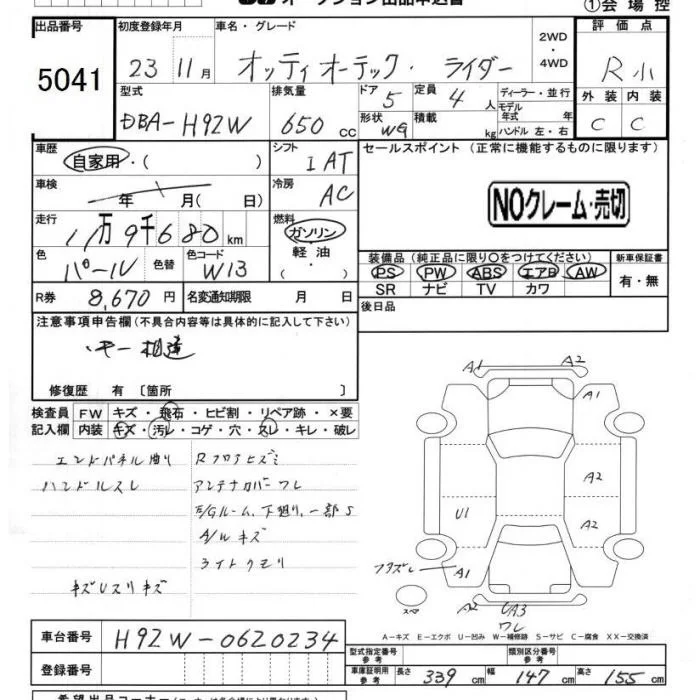 オークション出品申込書 ①会場控
出品番号 初度登録年月 車名・グレード 2WD・4WD 評価点
5041 23 11月 オッティ オーテック・ライダー R小
型式 排気量 ドア 5 定員 4人 ディーラー・並行 外装 内装
DBA-H92W 650cc 形状 WG 積載 kg モデル年式 年式 ハンドル 左・右 C C
車歴 自家用・( ) シフト IAT セールスポイント (正常に機能するものに限ります)
車検 年 月(日) 冷房 AC
NOクレーム・売切
走行 1万9千680km 燃料 ガソリン
軽油・( )
色 パール 色替 色コード W13
装備品(純正品に限り○をつけてください) 新車保証書
PS PW ABS エアB AW 有・無
SR ナビ TV カワ
R券 8,670円 名変通知期限 月 日 後日品
注意事項申告欄(不具合内容等は具体的に記入して下さい)
・キー相違
修復歴 有 〔箇所 〕
検査員 FW キズ・飛石・ヒビ割・リペア跡・×要
記入欄 内装 キズ・汚レ・コゲ・穴・スレ・キレ・破レ
エンドパネル曲り Rフロアヒズミ
ハンドルスレ アンテナカバーワレ
E/Gルーム、下廻り、一部S
A/Wキズ
ライトクモリ
キズUスリキズ
A1 A2
A1
A2
U1 A2
フタズレ A1 A1
スペア A2 UA3
ワレ
A-キズ E-エクボ U-凹み W-補修跡 S-サビ C-腐食 XX-交換済
車台番号 H92W-0620234
登録番号
型式指定番号 参考 類別区分番号 参考
車庫証明用 参考 長さ 339cm 幅 147cm 高さ 155cm